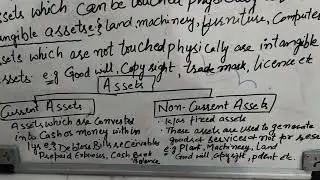 Assets which can be touched physically
tangible assets eg land, machinery, furniture, Computer
Assets which are not touched physically are intangible
Assets e.g Good will, Copy right, trade mark, licence etc
Assets
Current Assets
Non-Current Assets
Assets which are converted
into Cash or money within
1yr e.g Debtors Bills receivables
Prepaid Expenses, Cash Bank
balance
. k/as fixed assets
. These assets are used to generate
goods & services & not for resa
e.g Plant, Machinery, Land
Good will, copyright, patent etc.